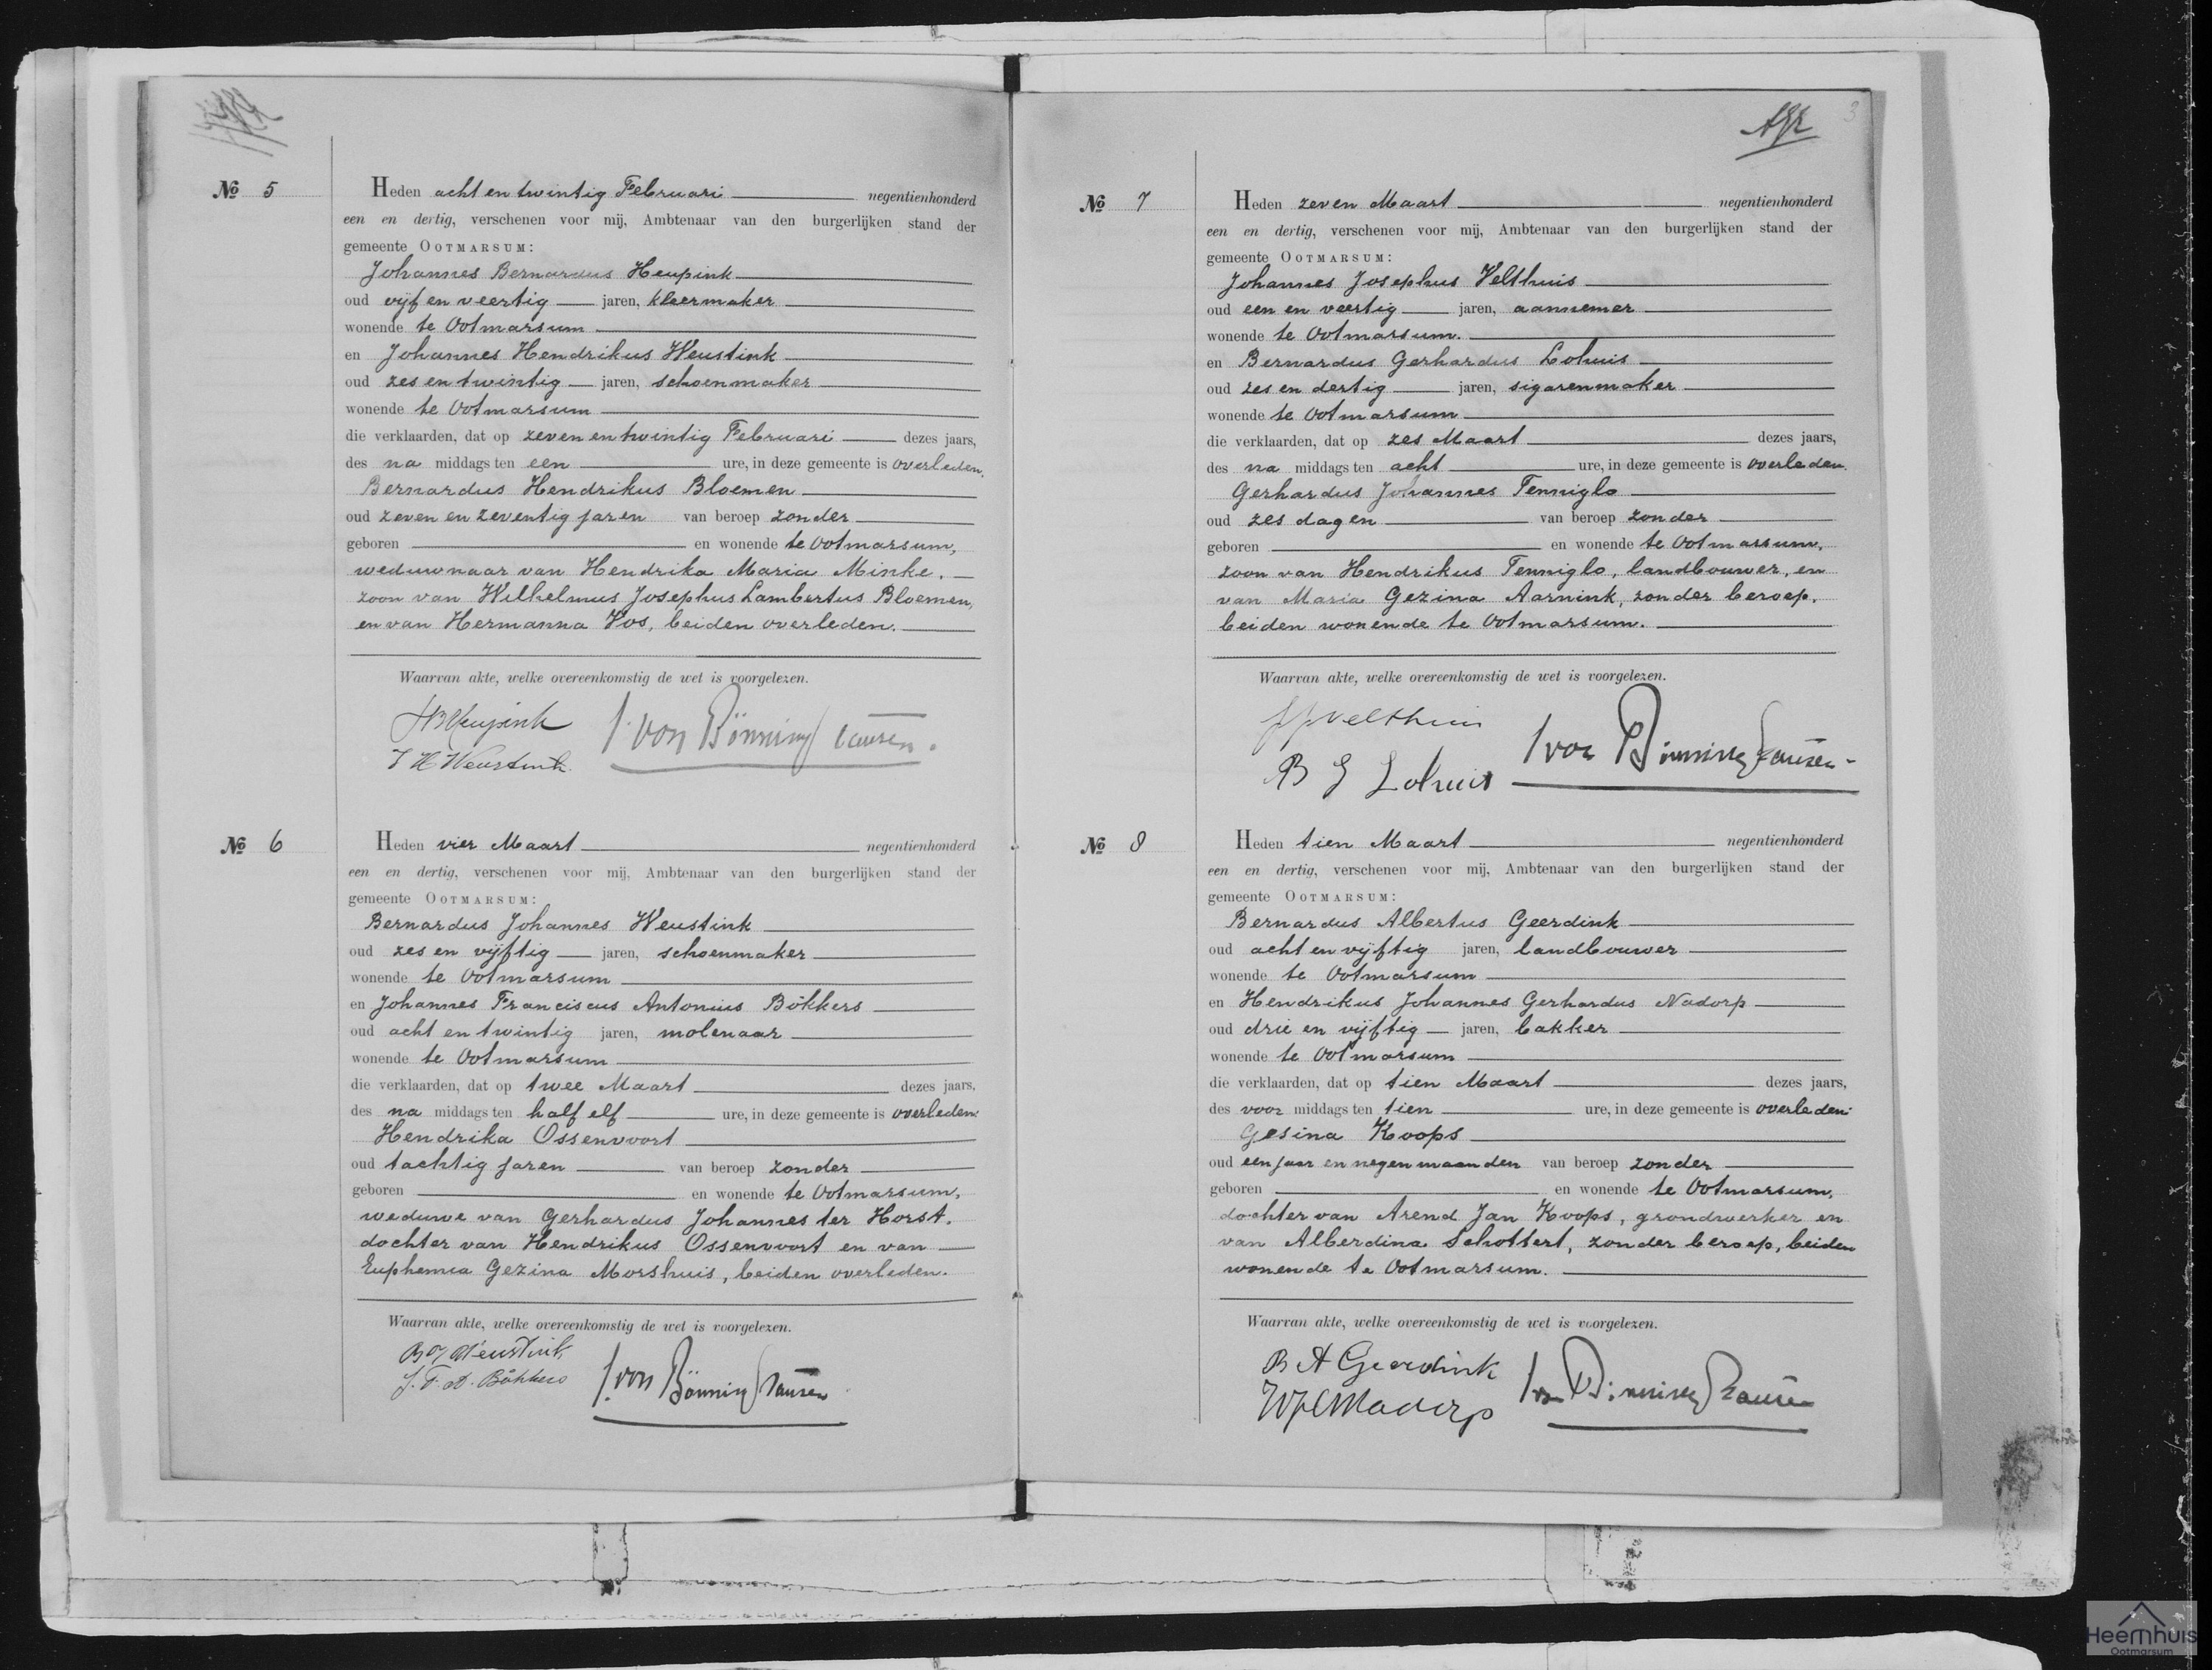 No 5
Heden acht en twintig Februari negentienhonderd
een en dertig, verschenen voor mij, Ambtenaar van den burgerlijken stand der
gemeente OOTMARSUM:
Johannes Bernardus Heupink
oud vijf en veertig jaren, kleermaker
wonende te Ootmarsum
en Johannes Hendrikus Weustink
oud zes en twintig jaren, schoenmaker
wonende te Ootmarsum
die verklaarden, dat op zeven en twintig Februari dezes jaars,
des na middags ten een ure, in deze gemeente is overleden
Bernardus Hendrikus Bloemen
oud zeven en zeventig jaren van beroep zonder
geboren en wonende te Ootmarsum,
weduwnaar van Hendrika Maria Minke,
zoon van Wilhelmus Josephus Lambertus Bloemen,
en van Hermanna Vos, beiden overleden.
Waarvan akte, welke overeenkomstig de wet is voorgelezen.
JB Heupink
J. von Bönninghausen.
J H Weustink.
No 6
Heden vier Maart negentienhonderd
een en dertig, verschenen voor mij, Ambtenaar van den burgerlijken stand der
gemeente OOTMARSUM:
Bernardus Johannes Weustink
oud zes en vijftig jaren, schoenmaker
wonende te Ootmarsum
en Johannes Franciscus Antonius Bökkers
oud acht en twintig jaren, molenaar
wonende te Ootmarsum
die verklaarden, dat op twee Maart dezes jaars,
des na middags ten half elf ure, in deze gemeente is overleden:
Hendrika Ossenvoort
oud tachtig jaren van beroep zonder
geboren en wonende te Ootmarsum,
weduwe van Gerhardus Johannes ter Horst,
dochter van Hendrikus Ossenvoort en van
Euphemia Gezina Morshuis, beiden overleden.
Waarvan akte, welke overeenkomstig de wet is voorgelezen.
B J Weustink
J. F. A. Bökkers
J. von Bönninghausen
3
No 7
Heden zeven Maart negentienhonderd
een en dertig, verschenen voor mij, Ambtenaar van den burgerlijken stand der
gemeente OOTMARSUM:
Johannes Josephus Velthuis
oud een en veertig jaren, aannemer
wonende te Ootmarsum.
en Bernardus Gerhardus Lohuis
oud zes en dertig jaren, sigarenmaker
wonende te Ootmarsum
die verklaarden, dat op zes Maart dezes jaars,
des na middags ten acht ure, in deze gemeente is overleden
Gerhardus Johannes Tenniglo
oud zes dagen van beroep zonder
geboren en wonende te Ootmarsum,
zoon van Hendrikus Tenniglo, landbouwer, en
van Maria Gezina Aarnink, zonder beroep,
beiden wonende te Ootmarsum.
Waarvan akte, welke overeenkomstig de wet is voorgelezen.
JJ Velthuis
J von Bönninghausen
B G Lohuis
No 8
Heden tien Maart negentienhonderd
een en dertig, verschenen voor mij, Ambtenaar van den burgerlijken stand der
gemeente OOTMARSUM:
Bernardus Albertus Geerdink
oud acht en vijftig jaren, landbouwer
wonende te Ootmarsum
en Hendrikus Johannes Gerhardus Nadorp
oud drie en vijftig jaren, bakker
wonende te Ootmarsum
die verklaarden, dat op tien Maart dezes jaars,
des voor middags ten tien ure, in deze gemeente is overleden:
Gesina Koops
oud een jaar en negen maanden van beroep zonder
geboren en wonende te Ootmarsum,
dochter van Arend Jan Koops, grondwerker en
van Alberdina Schottert, zonder beroep, beiden
wonende te Ootmarsum.
Waarvan akte, welke overeenkomstig de wet is voorgelezen.
B A Geerdink
J von Bönninghausen
HJG Nadorp
Heemhuis
Ootmarsum